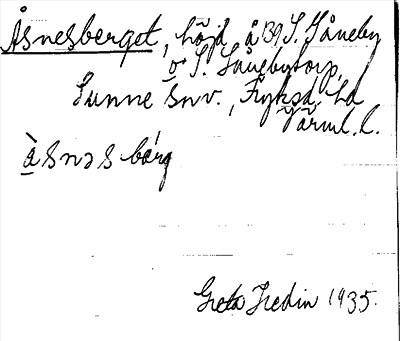 Åsnesberget, höjd å 139 S. Gåneby
o S. Gånebytorp,
Sunne snv., Fryksd. hd
Värml. l.
åsnəsbärg
Greta Hedin 1935.